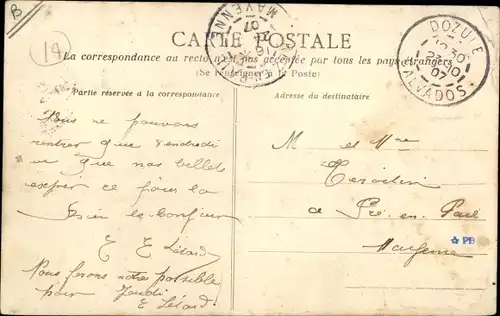 B
14
CARTE POSTALE
La correspondance au recto n'est pas acceptée par tous les pays étrangers
(Se renseigner à la Poste)
Partie réservée à la correspondance
Adresse du destinataire
MAYENNE
07
DOZULE
30
10
07
CALVADOS
Nous ne pouvons
rentrer que vendredi
vu que nos billets
expirer ce jour la
Bien le bonjour
E E Lézard
Nous ferons notre possible
pour Jeudi
E Lézard
M et Mme
a Pré en Pail
Mayenne
PB